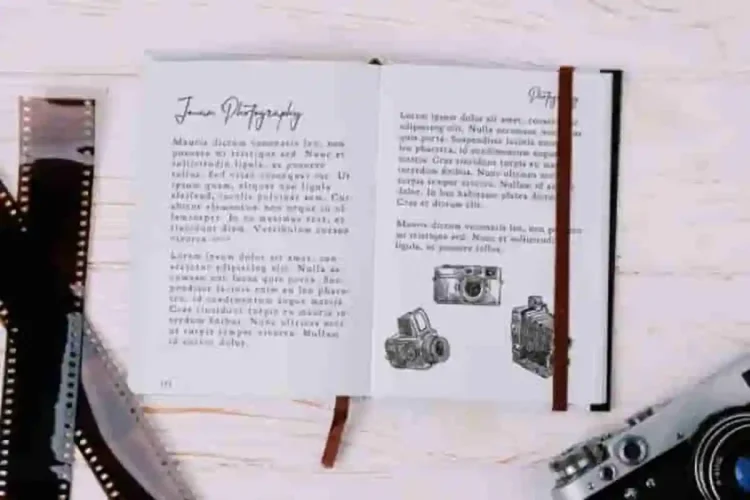 Photography
Mauris dictum venenatis leo, non
posuere mi tristique sed. Nunc et
sollicitudin ligula, ac posuere
tellus. Sed vitae consequat est. Ut
ipsum quam, aliquet non ligula
eleifend, iaculis pulvinar sem. Cur
abitur elementum non neque in ul
lamcorper. In eu maximus erat, et
tincidunt diam. Vestibulum cursus
viverra
Lorem ipsum dolor sit amet, con-
sectetur adipiscing elit. Nulla ac-
cumsan nec lacus quis porta. Sus-
pendisse lacinia enim eu leo phare-
tra, id condimentum augue mattis.
Cras tincidunt turpis eu mauris in
terdum finibus. Nunc ultrices sect
ut turpis semper viverra. Nullam
id auctor dolor.
Lorem ipsum dolor sit amet,
adipiscing elit. Nulla accumsan
quis porta. Suspendisse lacinia
leo pharetra, id condimentum
mattis. Cras tincidunt turpis eu
interdum finibus. Nunc ultrices
turpis semper viverra. Nullam id
dolor. In hac habitasse platea
Cras et dictum elit.
Mauris dictum venenatis leo, non
mi tristique sed. Nunc et
ligula, ac posuere tellus.